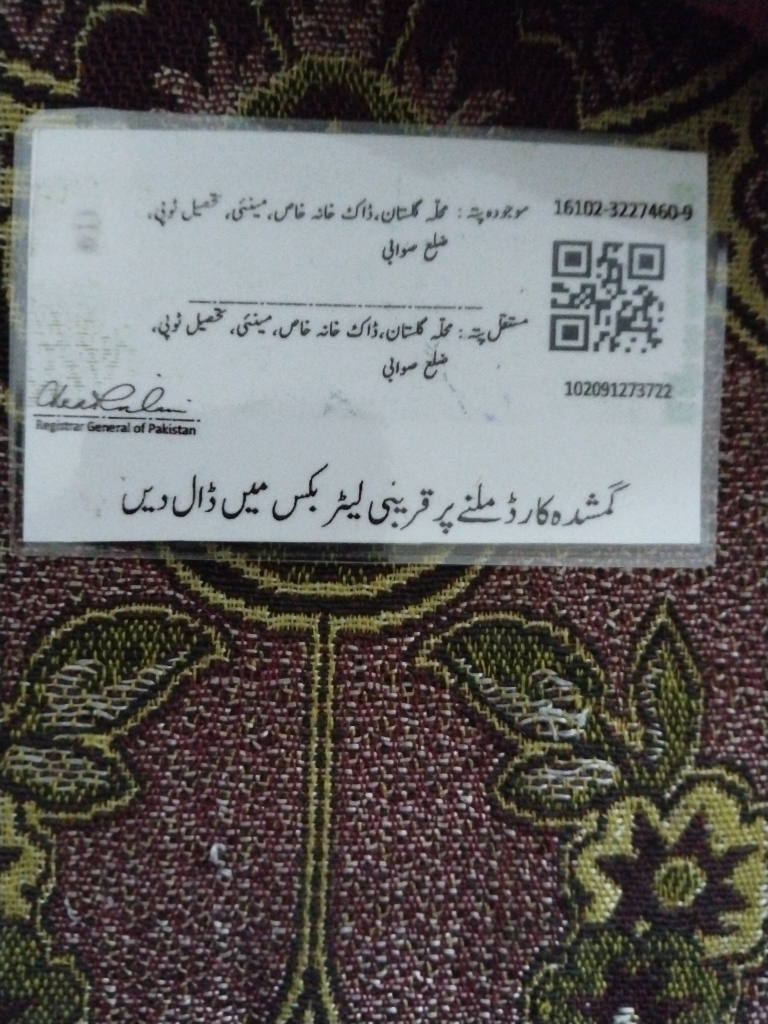 16102-3227460-9
موجودہ پتہ : محلہ گلستان، ڈاک خانہ خاص، مینئی، تحصیل ٹوپی،
ضلع صوابی
مستقل پتہ : محلہ گلستان، ڈاک خانہ خاص، مینئی، تحصیل ٹوپی،
ضلع صوابی
102091273722
Registrar General of Pakistan
گمشدہ کارڈ ملنے پر قریبی لیٹر بکس میں ڈال دیں